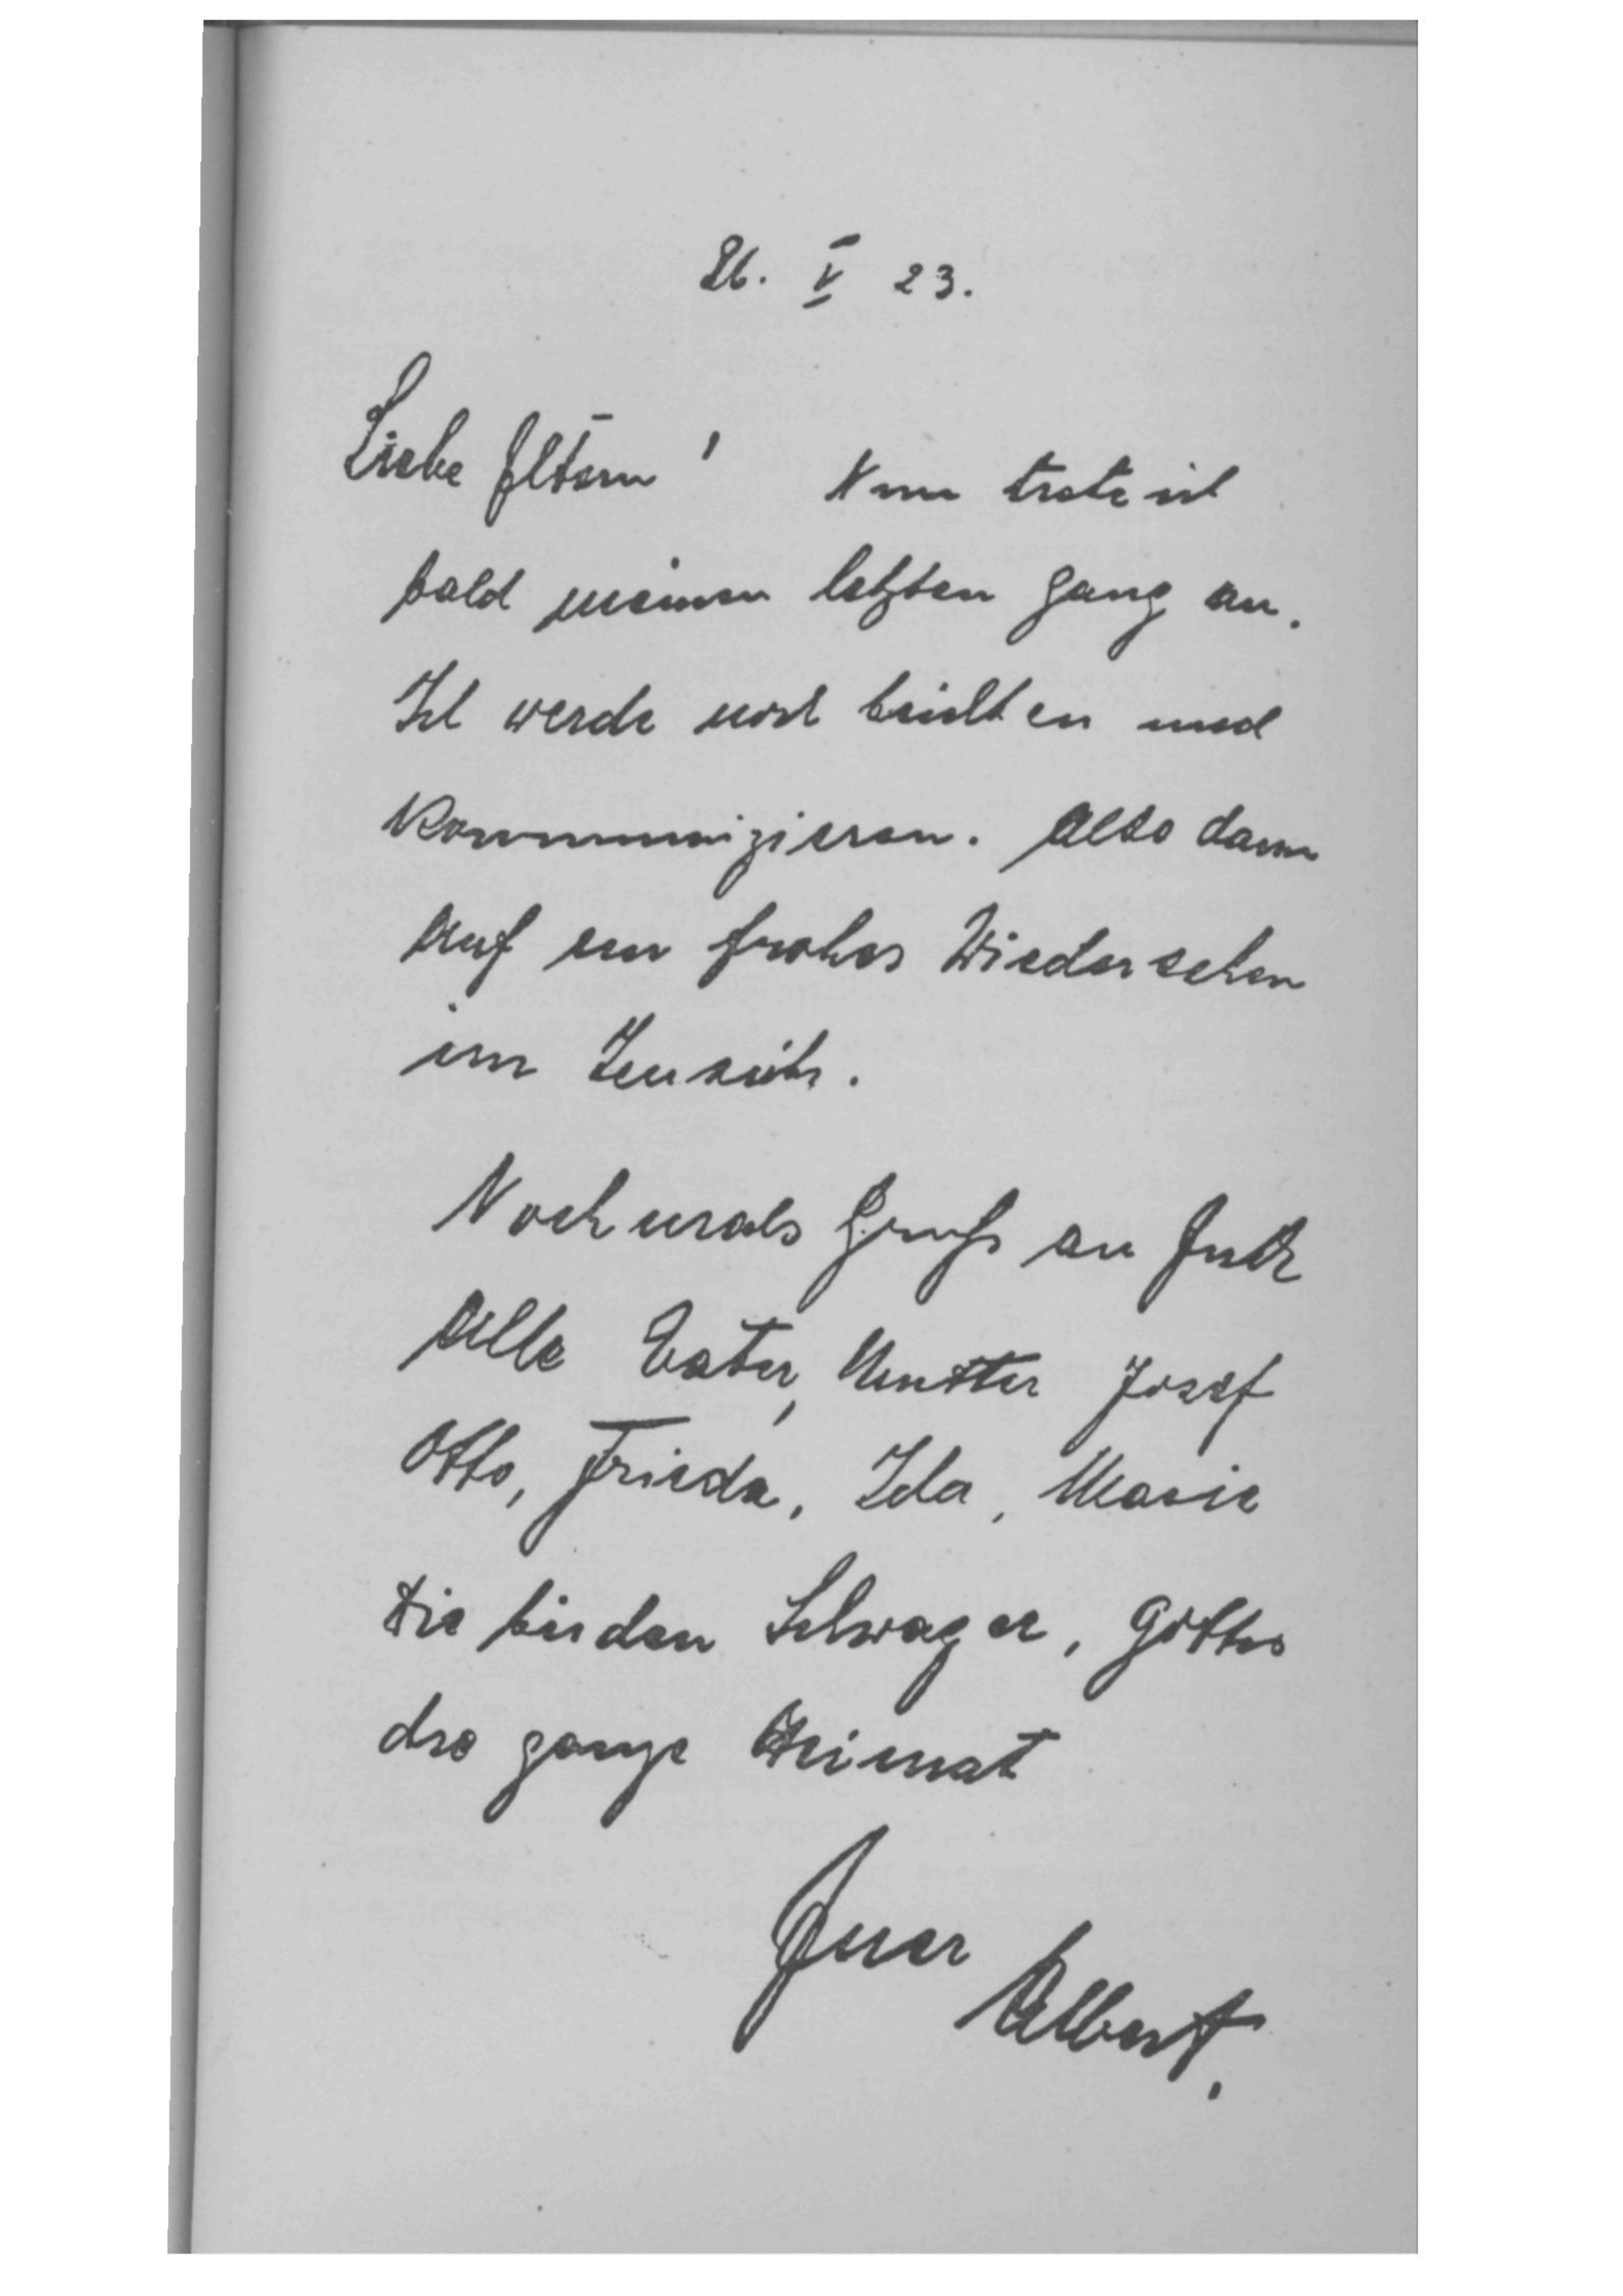 26. V 23.
Liebe Eltern! Nun trete ich
bald meinen letzten Gang an.
Ich werde noch beichten und
kommunizieren. Also dann
auf ein frohes Wiedersehen
im Jenseits.
Nochmals Gruß an Euch
Alle Vater, Mutter Josef
Otto, Frieda, Ida, Marie
die beiden Schwager, Göttes
die ganze Heimat
Euer
Albert.